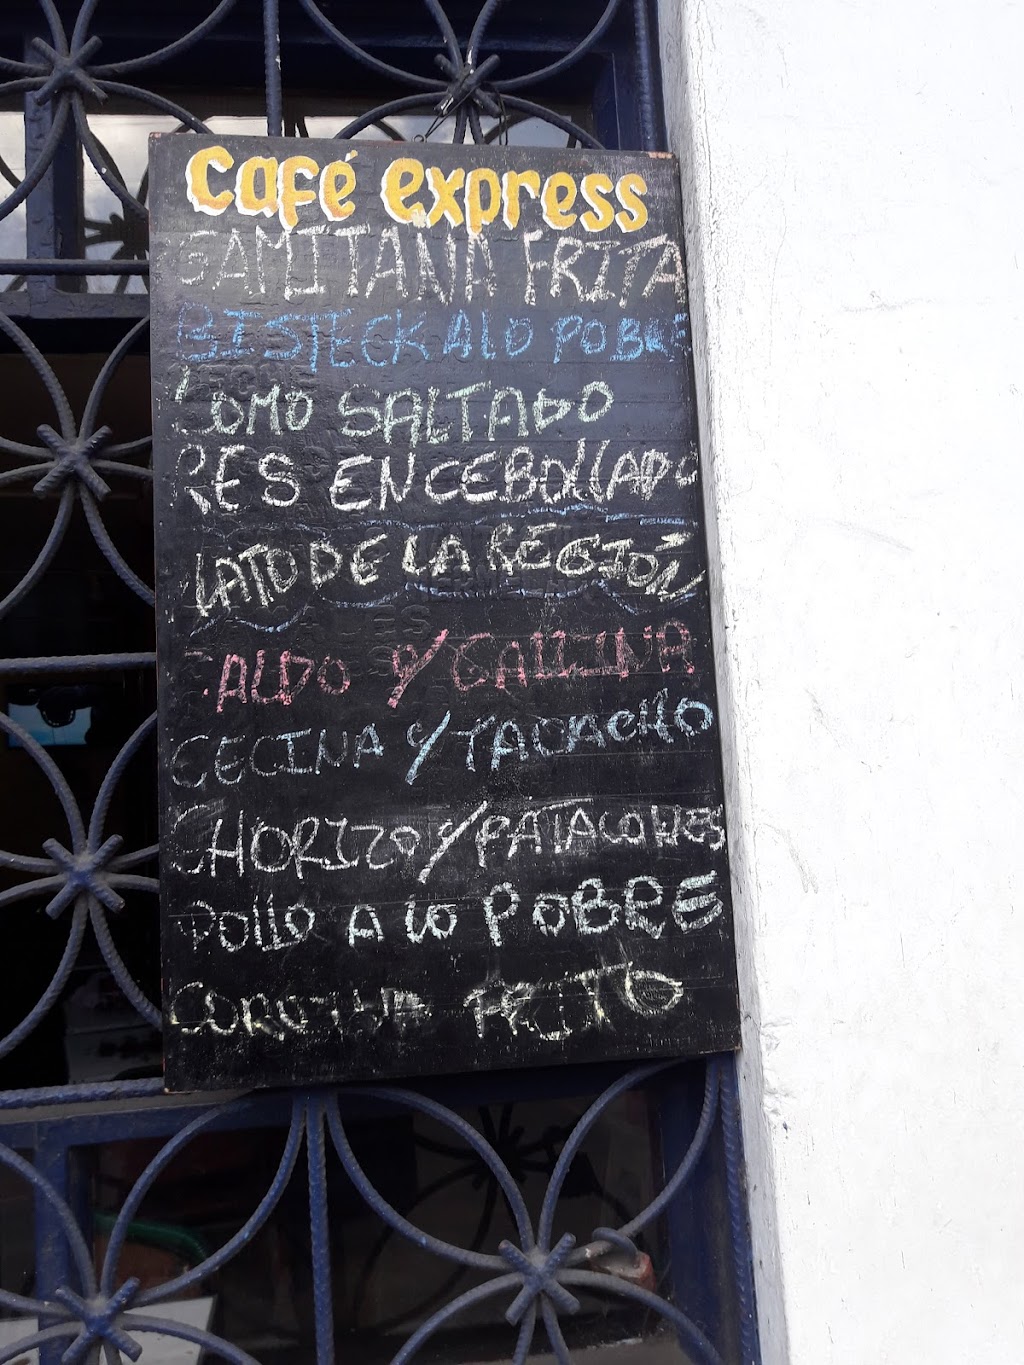 Café express
GAMITANA FRITA
BISTECK A LO POBRE
LOMO SALTADO
RES ENCEBOLLADO
PLATO DE LA REGIÓN
CALDO y GALLINA
CECINA y TACACHO
CHORIZO y PATACONES
POLLO A LO POBRE
CORVINA FRITO